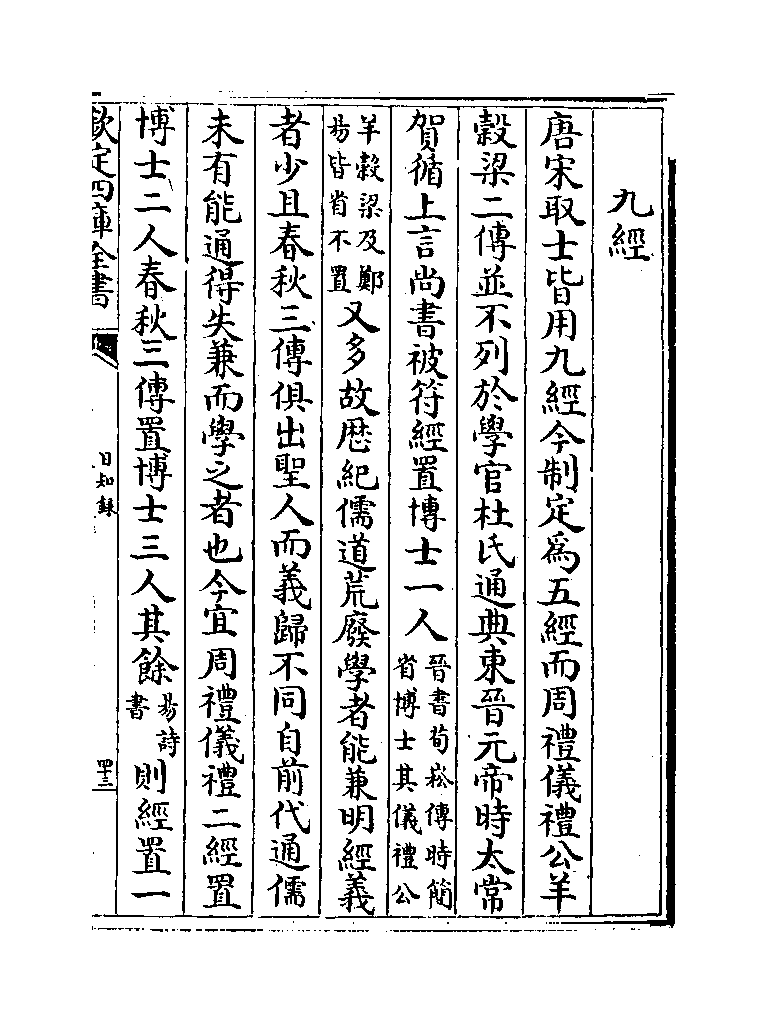 九經
唐宋取士皆用九經今制定爲五經而周禮儀禮公羊
穀梁二傳並不列於學官杜氏通典東晉元帝時太常
賀循上言尚書被符經置博士一人晉書荀崧傳時簡省博士其儀禮公
羊穀梁及鄭易皆省不置又多故歴紀儒道荒廢學者能兼明經義
者少且春秋三傳俱出聖人而義歸不同自前代通儒
未有能通得失兼而學之者也今宜周禮儀禮二經置
博士二人春秋三傳置博士三人其餘易詩書則經置一
欽定四庫全書
日知錄
四十三